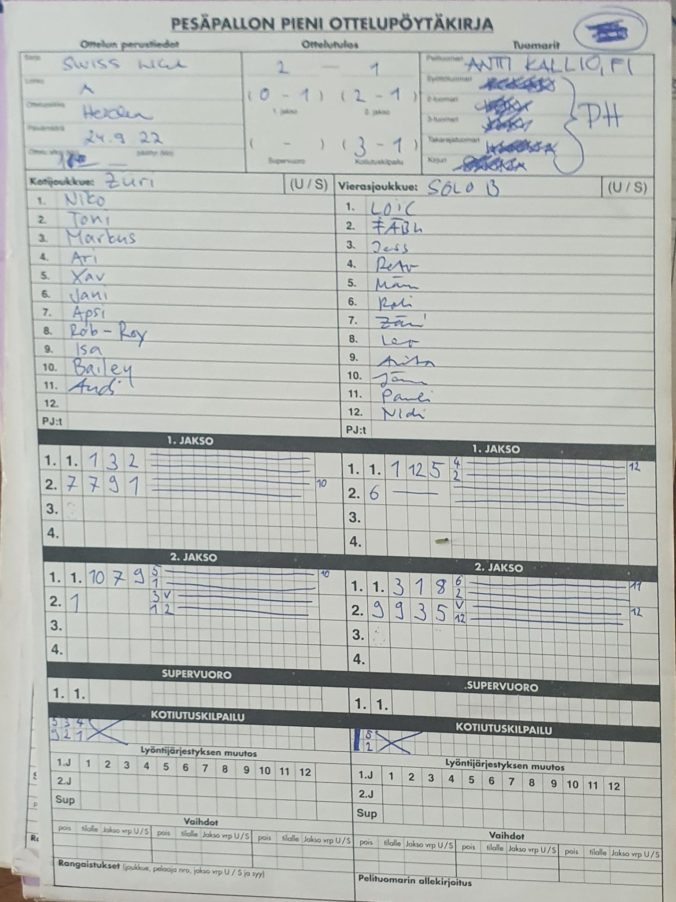 PESÄPALLON PIENI OTTELUPÖYTÄKIRJA
Ottelun perustiedot Ottelutulos Tuomarit
Sarja SWISS 2 — 1 Pelituomari ANTTI KALLIO, FI
Lohko A (0 - 1) (2 - 1) Syöttötuomari
Ottelupaikka 1. jakso 2. jakso 2-tuomari
3-tuomari PH
Päivämäärä 24.9 22 ( - ) (3 - 1) Takarajatuomari
Supervuoro Kotiutuskilpailu Kirjuri
Kotijoukkue: Züri (U / S) Vierasjoukkue: SOLO B (U / S)
1. Niko 1. LOIC
2. Toni 2. FÄBU
3. Markus 3. Jess
4. Ari 4. Reto
5. Xav 5. Män
6. Jani 6. Roli
7. Apsi 7. Zäni
8. Rob-Roy 8. Leo
9. Isa 9.
10. Bailey 10.
11. Andi 11. Pauli
12. 12. Nidi
PJ:t PJ:t
1. JAKSO 1. JAKSO
1. 1. 1 3 2 1. 1. 1 12 5 4 2 12
2. 7 7 9 1 10 2. 6 —
3. 3.
4. 4.
2. JAKSO 2. JAKSO
1. 1. 10 7 9 5 1 10 1. 1. 3 1 8 6 2 11
2. 1 3 V 1 2 2. 9 9 3 5 V 12 12
3. 3.
4. 4.
SUPERVUORO SUPERVUORO
1. 1. 1. 1.
KOTIUTUSKILPAILU KOTIUTUSKILPAILU
5 3 4 5
9 2 1 2
Lyöntijärjestyksen muutos Lyöntijärjestyksen muutos
1.J 1 2 3 4 5 6 7 8 9 10 11 12 1.J 1 2 3 4 5 6 7 8 9 10 11 12
2.J 2.J
Sup Sup
Vaihdot Vaihdot
pois tilalle Jakso vrp U/S pois tilalle Jakso vrp U/S pois tilalle Jakso vrp U/S pois tilalle Jakso vrp U/S pois tilalle Jakso vrp U/S pois tilalle Jakso vrp U/S
Rangaistukset (joukkue, pelaaja nro, jakso vrp U / S ja syy) Pelituomarin allekirjoitus